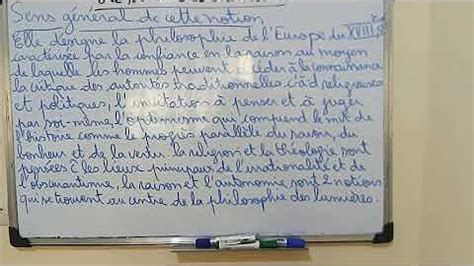 Sens général de cette notion
Elle designe la philosophie de l'Europe du XVIII
caractérisé par la confiance en la raison au moyen
de laquelle les hommes peuvent accéder à la connaissance
la critique des autorités traditionnelles c'àd religieuses
et politiques, l'invitation à penser et à juger
par soi-même, l'optimisme qui comprend le mot de
l'histoire comme le progrès parallèle du savoir, du
bonheur et de la vertu. la religion et la théologie sont
pensées c les lieux principaux de l'irrationalité et de
l'obscurantisme, la raison et l'autonomie sont 2 notions
qui se trouvent au centre de la philosophie des lumières.